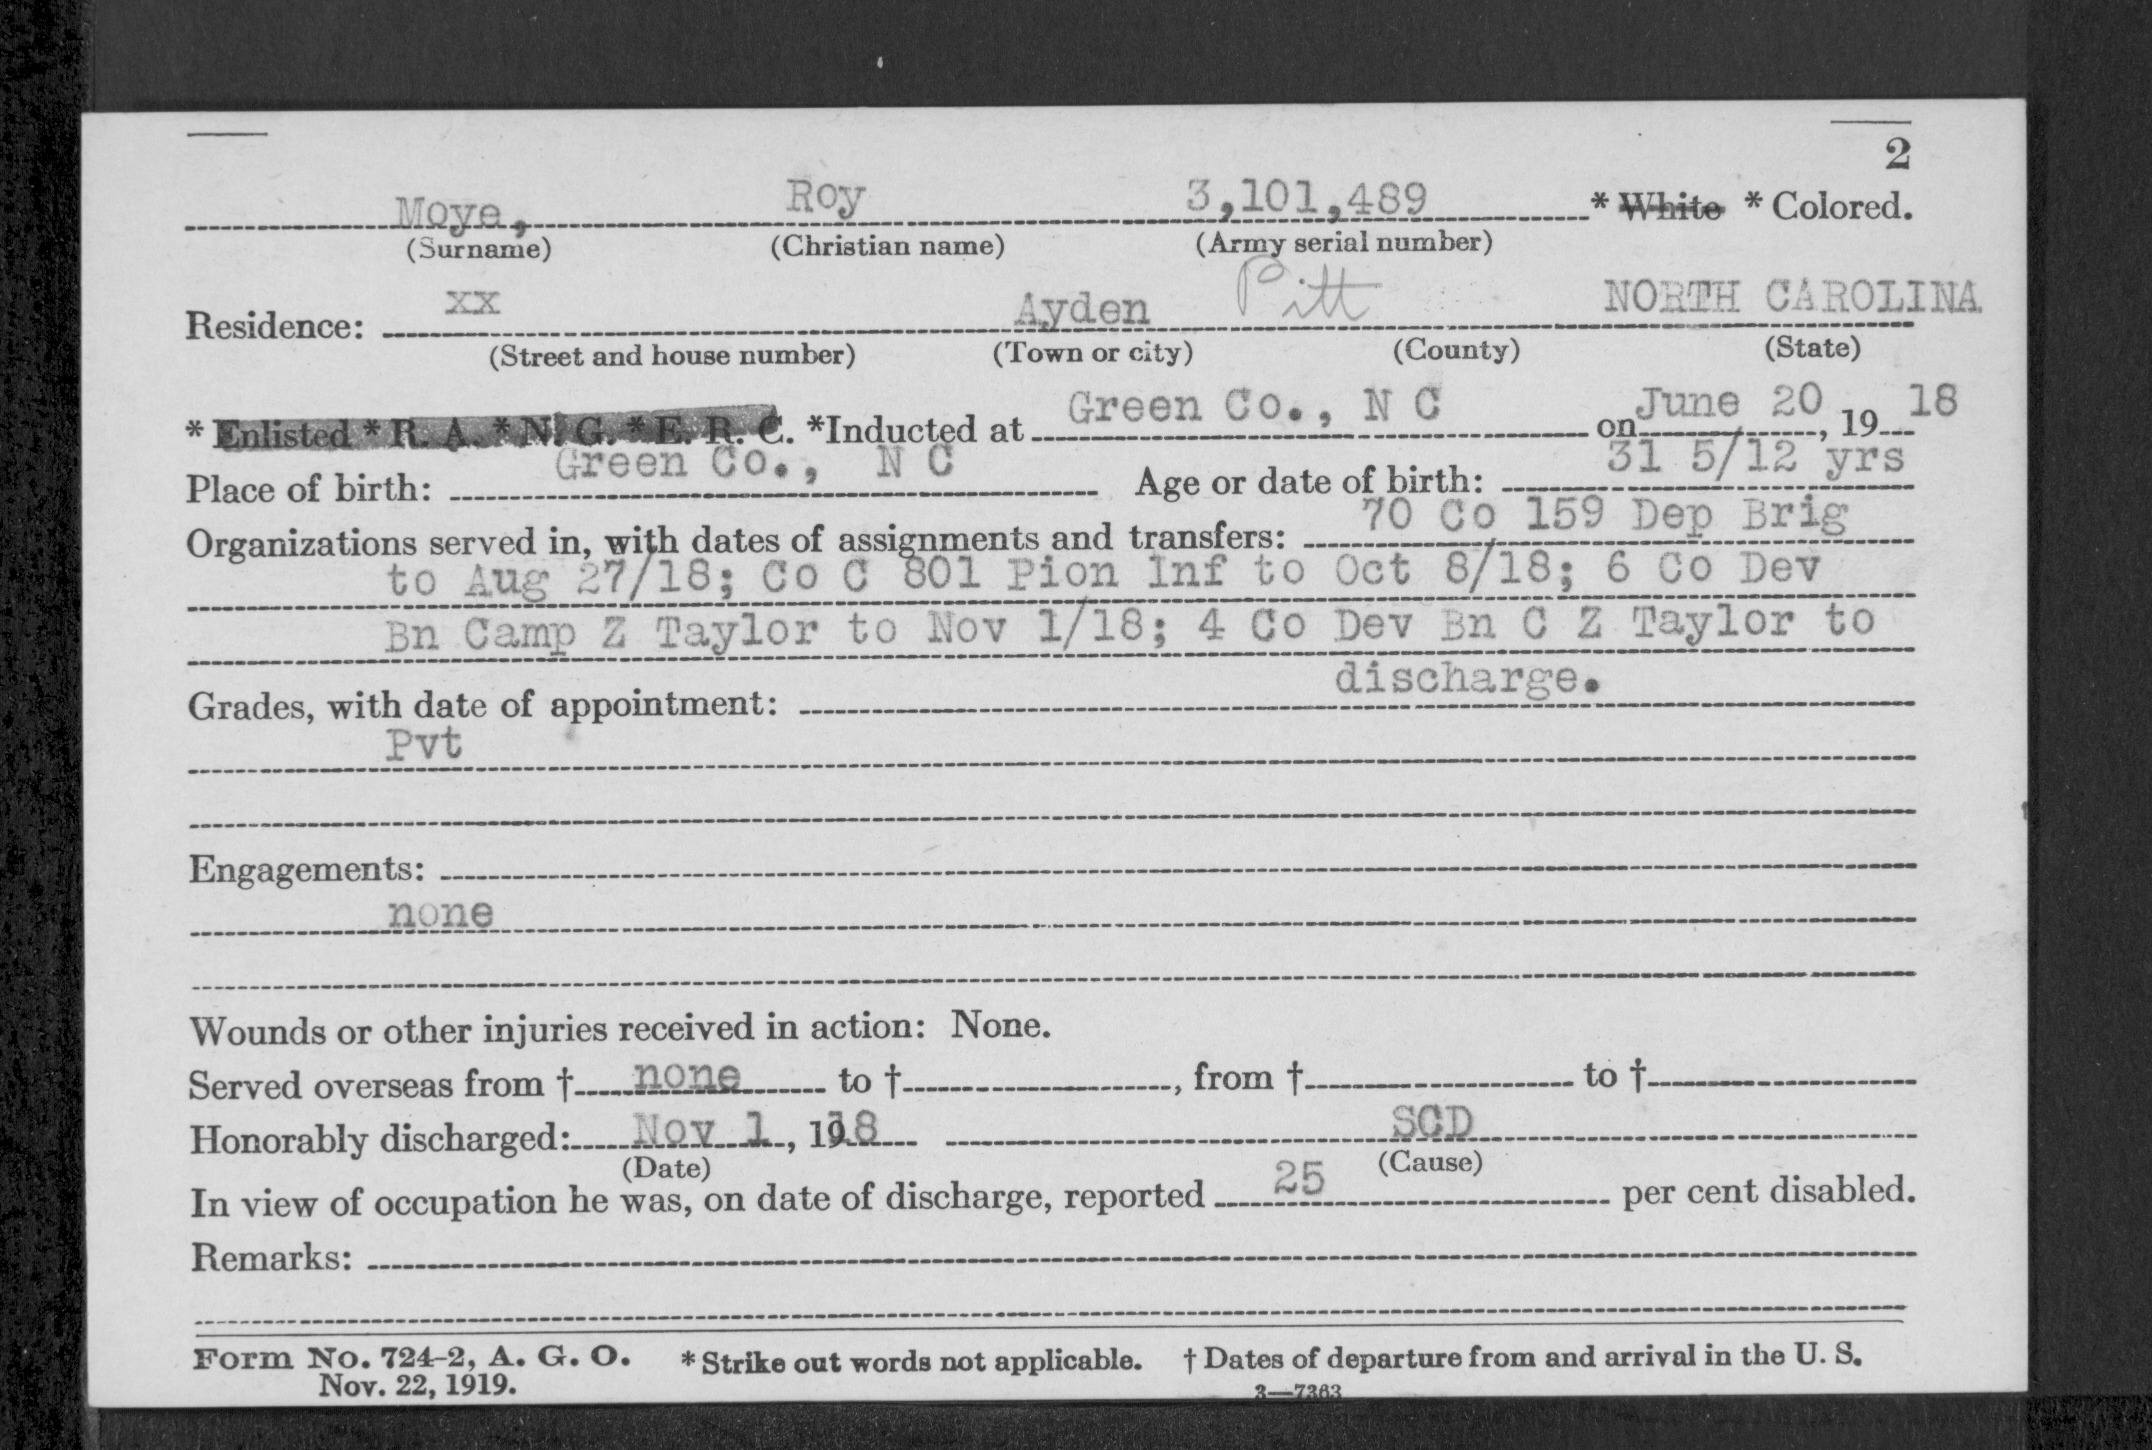 2
Moye, Roy 3,101,489 * White * Colored.
(Surname) (Christian name) (Army serial number)
Residence: xx Ayden Pitt NORTH CAROLINA
(Street and house number) (Town or city) (County) (State)
* Enlisted * R. A. * N. G. * E. R. C. *Inducted at Green Co., N C on June 20, 19 18
Place of birth: Green Co., N C Age or date of birth: 31 5/12 yrs
Organizations served in, with dates of assignments and transfers: 70 Co 159 Dep Brig
to Aug 27/18; Co C 801 Pion Inf to Oct 8/18; 6 Co Dev
Bn Camp Z Taylor to Nov 1/18; 4 Co Dev Bn C Z Taylor to
discharge.
Grades, with date of appointment:
Pvt
Engagements:
none
Wounds or other injuries received in action: None.
Served overseas from † none to †, from † to †
Honorably discharged: Nov 1, 1918 SCD
(Date) (Cause)
In view of occupation he was, on date of discharge, reported 25 per cent disabled.
Remarks:
Form No. 724-2, A. G. O. * Strike out words not applicable. † Dates of departure from and arrival in the U. S.
Nov. 22, 1919. 3—7363